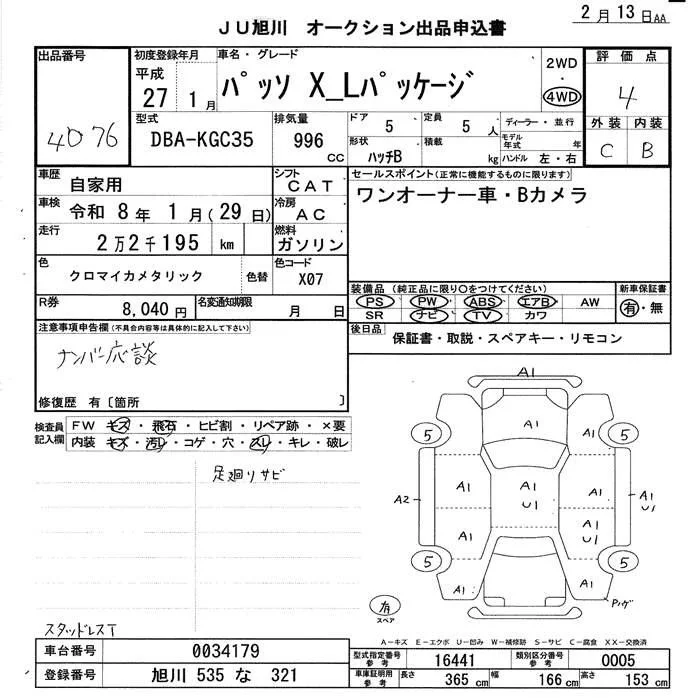 2月13日AA
JU旭川 オークション出品申込書
出品番号
4076
初度登録年月
平成
27 1月
車名・グレード
パッソ X_Lパッケージ
2WD
・
4WD
評価点
4
外装 内装
C B
型式
DBA-KGC35
排気量
996
CC
ドア
5
定員
5人
形状
ハッチB
積載
kg
ディーラー・並行
モデル年式 年
ハンドル 左・右
車歴
自家用
シフト
CAT
車検
令和 8年 1月(29日)
冷房
AC
走行
2万2千195 km
燃料
ガソリン
色
クロマイカメタリック
色替
色コード
X07
R券
8,040円
名変通知期限
月 日
セールスポイント(正常に機能するものに限ります)
ワンオーナー車・Bカメラ
装備品(純正品に限り○をつけてください)
新車保証書
PS PW ABS エアB AW
SR ナビ TV カワ
有・無
後日品
保証書・取説・スペアキー・リモコン
注意事項申告欄(不具合内容等は具体的に記入して下さい)
ナンバー応談
修復歴 有〔箇所 〕
検査員記入欄
FW キズ・飛石・ヒビ割・リペア跡・×要
内装 キズ・汚レ・コゲ・穴・スレ・キレ・破レ
足廻りサビ
スタッドレスT
A1
A1
5 5
A1 A1 A1
U1
A2
A1
U1
A1 A1
U1
5 5
A1 A1
Pハゲ
有
スペア
A-キズ E-エクボ U-凹み W-補修跡 S-サビ C-腐食 XX-交換済
車台番号
0034179
登録番号
旭川 535 な 321
型式指定番号
参考
16441
類別区分番号
参考
0005
車庫証明用
参考
長さ
365 cm
幅
166 cm
高さ
153 cm